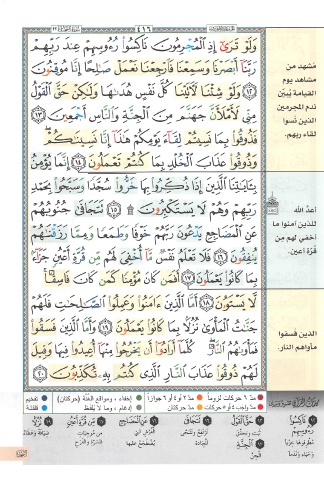 ٤١٦
وَلَوْ تَرَىٰٓ إِذِ ٱلْمُجْرِمُونَ نَاكِسُوا۟ رُءُوسِهِمْ عِندَ رَبِّهِمْ
رَبَّنَآ أَبْصَرْنَا وَسَمِعْنَا فَٱرْجِعْنَا نَعْمَلْ صَٰلِحًا إِنَّا مُوقِنُونَ
١٢ وَلَوْ شِئْنَا لَءَاتَيْنَا كُلَّ نَفْسٍ هُدَىٰهَا وَلَٰكِنْ حَقَّ ٱلْقَوْلُ
مِنِّى لَأَمْلَأَنَّ جَهَنَّمَ مِنَ ٱلْجِنَّةِ وَٱلنَّاسِ أَجْمَعِينَ ١٣
فَذُوقُوا۟ بِمَا نَسِيتُمْ لِقَآءَ يَوْمِكُمْ هَٰذَآ إِنَّا نَسِينَٰكُمْ
وَذُوقُوا۟ عَذَابَ ٱلْخُلْدِ بِمَا كُنتُمْ تَعْمَلُونَ ١٤ إِنَّمَا يُؤْمِنُ
بِـَٔايَٰتِنَا ٱلَّذِينَ إِذَا ذُكِّرُوا۟ بِهَا خَرُّوا۟ سُجَّدًا وَسَبَّحُوا۟ بِحَمْدِ
رَبِّهِمْ وَهُمْ لَا يَسْتَكْبِرُونَ ۩ ١٥ تَتَجَافَىٰ جُنُوبُهُمْ
عَنِ ٱلْمَضَاجِعِ يَدْعُونَ رَبَّهُمْ خَوْفًا وَطَمَعًا وَمِمَّا رَزَقْنَٰهُمْ
يُنفِقُونَ ١٦ فَلَا تَعْلَمُ نَفْسٌ مَّآ أُخْفِىَ لَهُم مِّن قُرَّةِ أَعْيُنٍ جَزَآءًۢ
بِمَا كَانُوا۟ يَعْمَلُونَ ١٧ أَفَمَن كَانَ مُؤْمِنًا كَمَن كَانَ فَاسِقًا ۚ
لَّا يَسْتَوُۥنَ ١٨ أَمَّا ٱلَّذِينَ ءَامَنُوا۟ وَعَمِلُوا۟ ٱلصَّٰلِحَٰتِ فَلَهُمْ
جَنَّٰتُ ٱلْمَأْوَىٰ نُزُلًۢا بِمَا كَانُوا۟ يَعْمَلُونَ ١٩ وَأَمَّا ٱلَّذِينَ فَسَقُوا۟
فَمَأْوَىٰهُمُ ٱلنَّارُ ۖ كُلَّمَآ أَرَادُوٓا۟ أَن يَخْرُجُوا۟ مِنْهَآ أُعِيدُوا۟ فِيهَا وَقِيلَ
لَهُمْ ذُوقُوا۟ عَذَابَ ٱلنَّارِ ٱلَّذِى كُنتُم بِهِۦ تُكَذِّبُونَ ٢٠
مشهد من
مشاهد يوم
القيامة يُبيّن
ندم المجرمين
الذين نَسوا
لقاء ربهم.
أعدّ الله
للذين آمنوا ما
أخفي لهم من
قُرّة أعين.
الذين فسقوا
مأواهم النار.
مدّ ٦ حركات لزوماً
مدّ ٢ أو ٤ أو ٦ جوازاً
إخفاء، ومواقع الغُنّة (حركتان)
تفخيم
مدّ واجب ٤ أو ٥ حركات
مدّ حركتان
إدغام، وما لا يُلفظ
قلقلة
نَاكِسُوا
رُءُوسِهِمْ
الْجِنَّةِ
الجنّ
تَتَجَافَىٰ
عَنِ الْمَضَاجِعِ